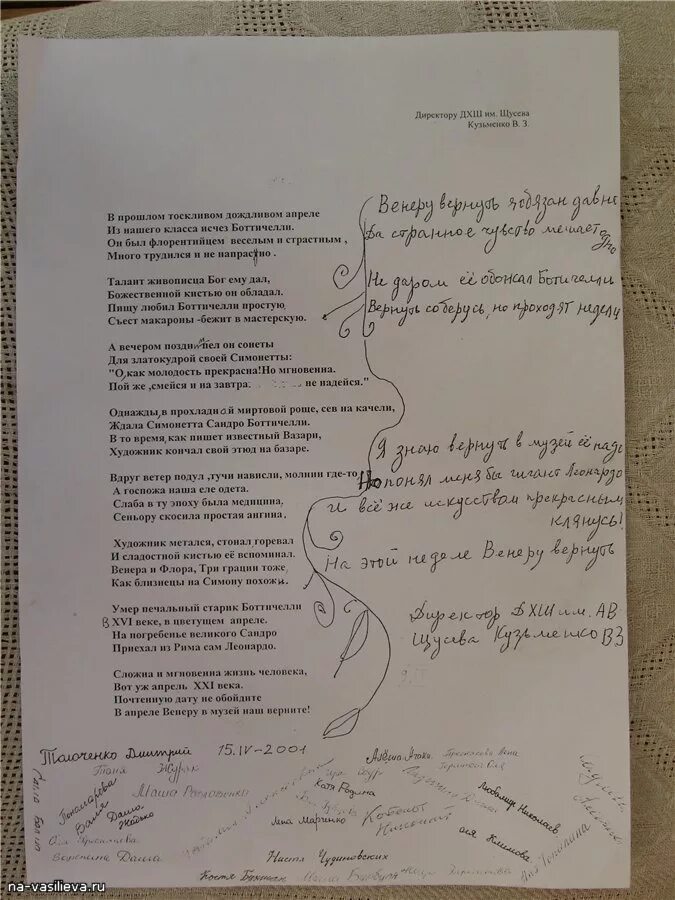 Директору ДХШ им. Щусева
Кузьменко В. З.
В прошлом тоскливом дождливом апреле
Из нашего класса исчез Боттичелли.
Он был флорентийцем веселым и страстным ,
Много трудился и не напрасно .
Талант живописца Бог ему дал,
Божественной кистью он обладал.
Пищу любил Боттичелли простую
Съест макароны -бежит в мастерскую.
А вечером поздним пел он сонеты
Для златокудрой своей Симонетты:
"О,как молодость прекрасна!Но мгновенна.
Пой же ,смейся и на завтра. не надейся."
Однажды,в прохладной миртовой роще, сев на качели,
Ждала Симонетта Сандро Боттичелли.
В то время,как пишет известный Вазари,
Художник кончал свой этюд на базаре.
Вдруг ветер подул ,тучи нависли, молнии где-то
А госпожа наша еле одета.
Слаба в ту эпоху была медицина,
Сеньору скосила простая ангина.
Художник метался, стонал,горевал
И сладостной кистью её вспоминал.
Венера и Флора, Три грации тоже,
Как близнецы на Симону похожи.
Умер печальный старик Боттичелли
В XVI веке, в цветущем апреле.
На погребенье великого Сандро
Приехал из Рима сам Леонардо.
Сложна и мгновенна жизнь человека,
Вот уж апрель XXI века.
Почтенную дату не обойдите
В апреле Венеру в музей наш верните!
Венеру вернуть я обязан давно
Да странное чувство мешает одно
Не даром её обожал Ботичелли
Вернуть соберусь, но проходят недели
Я знаю вернуть в музей её надо
Но понял меня бы гигант Леонардо
И всё же искусством прекрасным
клянусь!
На этой неделе Венеру вернуть
Директор ДХШ им. АВ
Щусева Кузьменко ВЗ
Толоченко Дмитрий 15.IV-2001
Таня Журик
Пономарёва
Валя
Даша
Маша
Катя Родина
Лена Марченко
Любомир Николаев
Оля Климова
Воронина Даша
Настя Чудиновских
Костя
Маша
na-vasilieva.ru